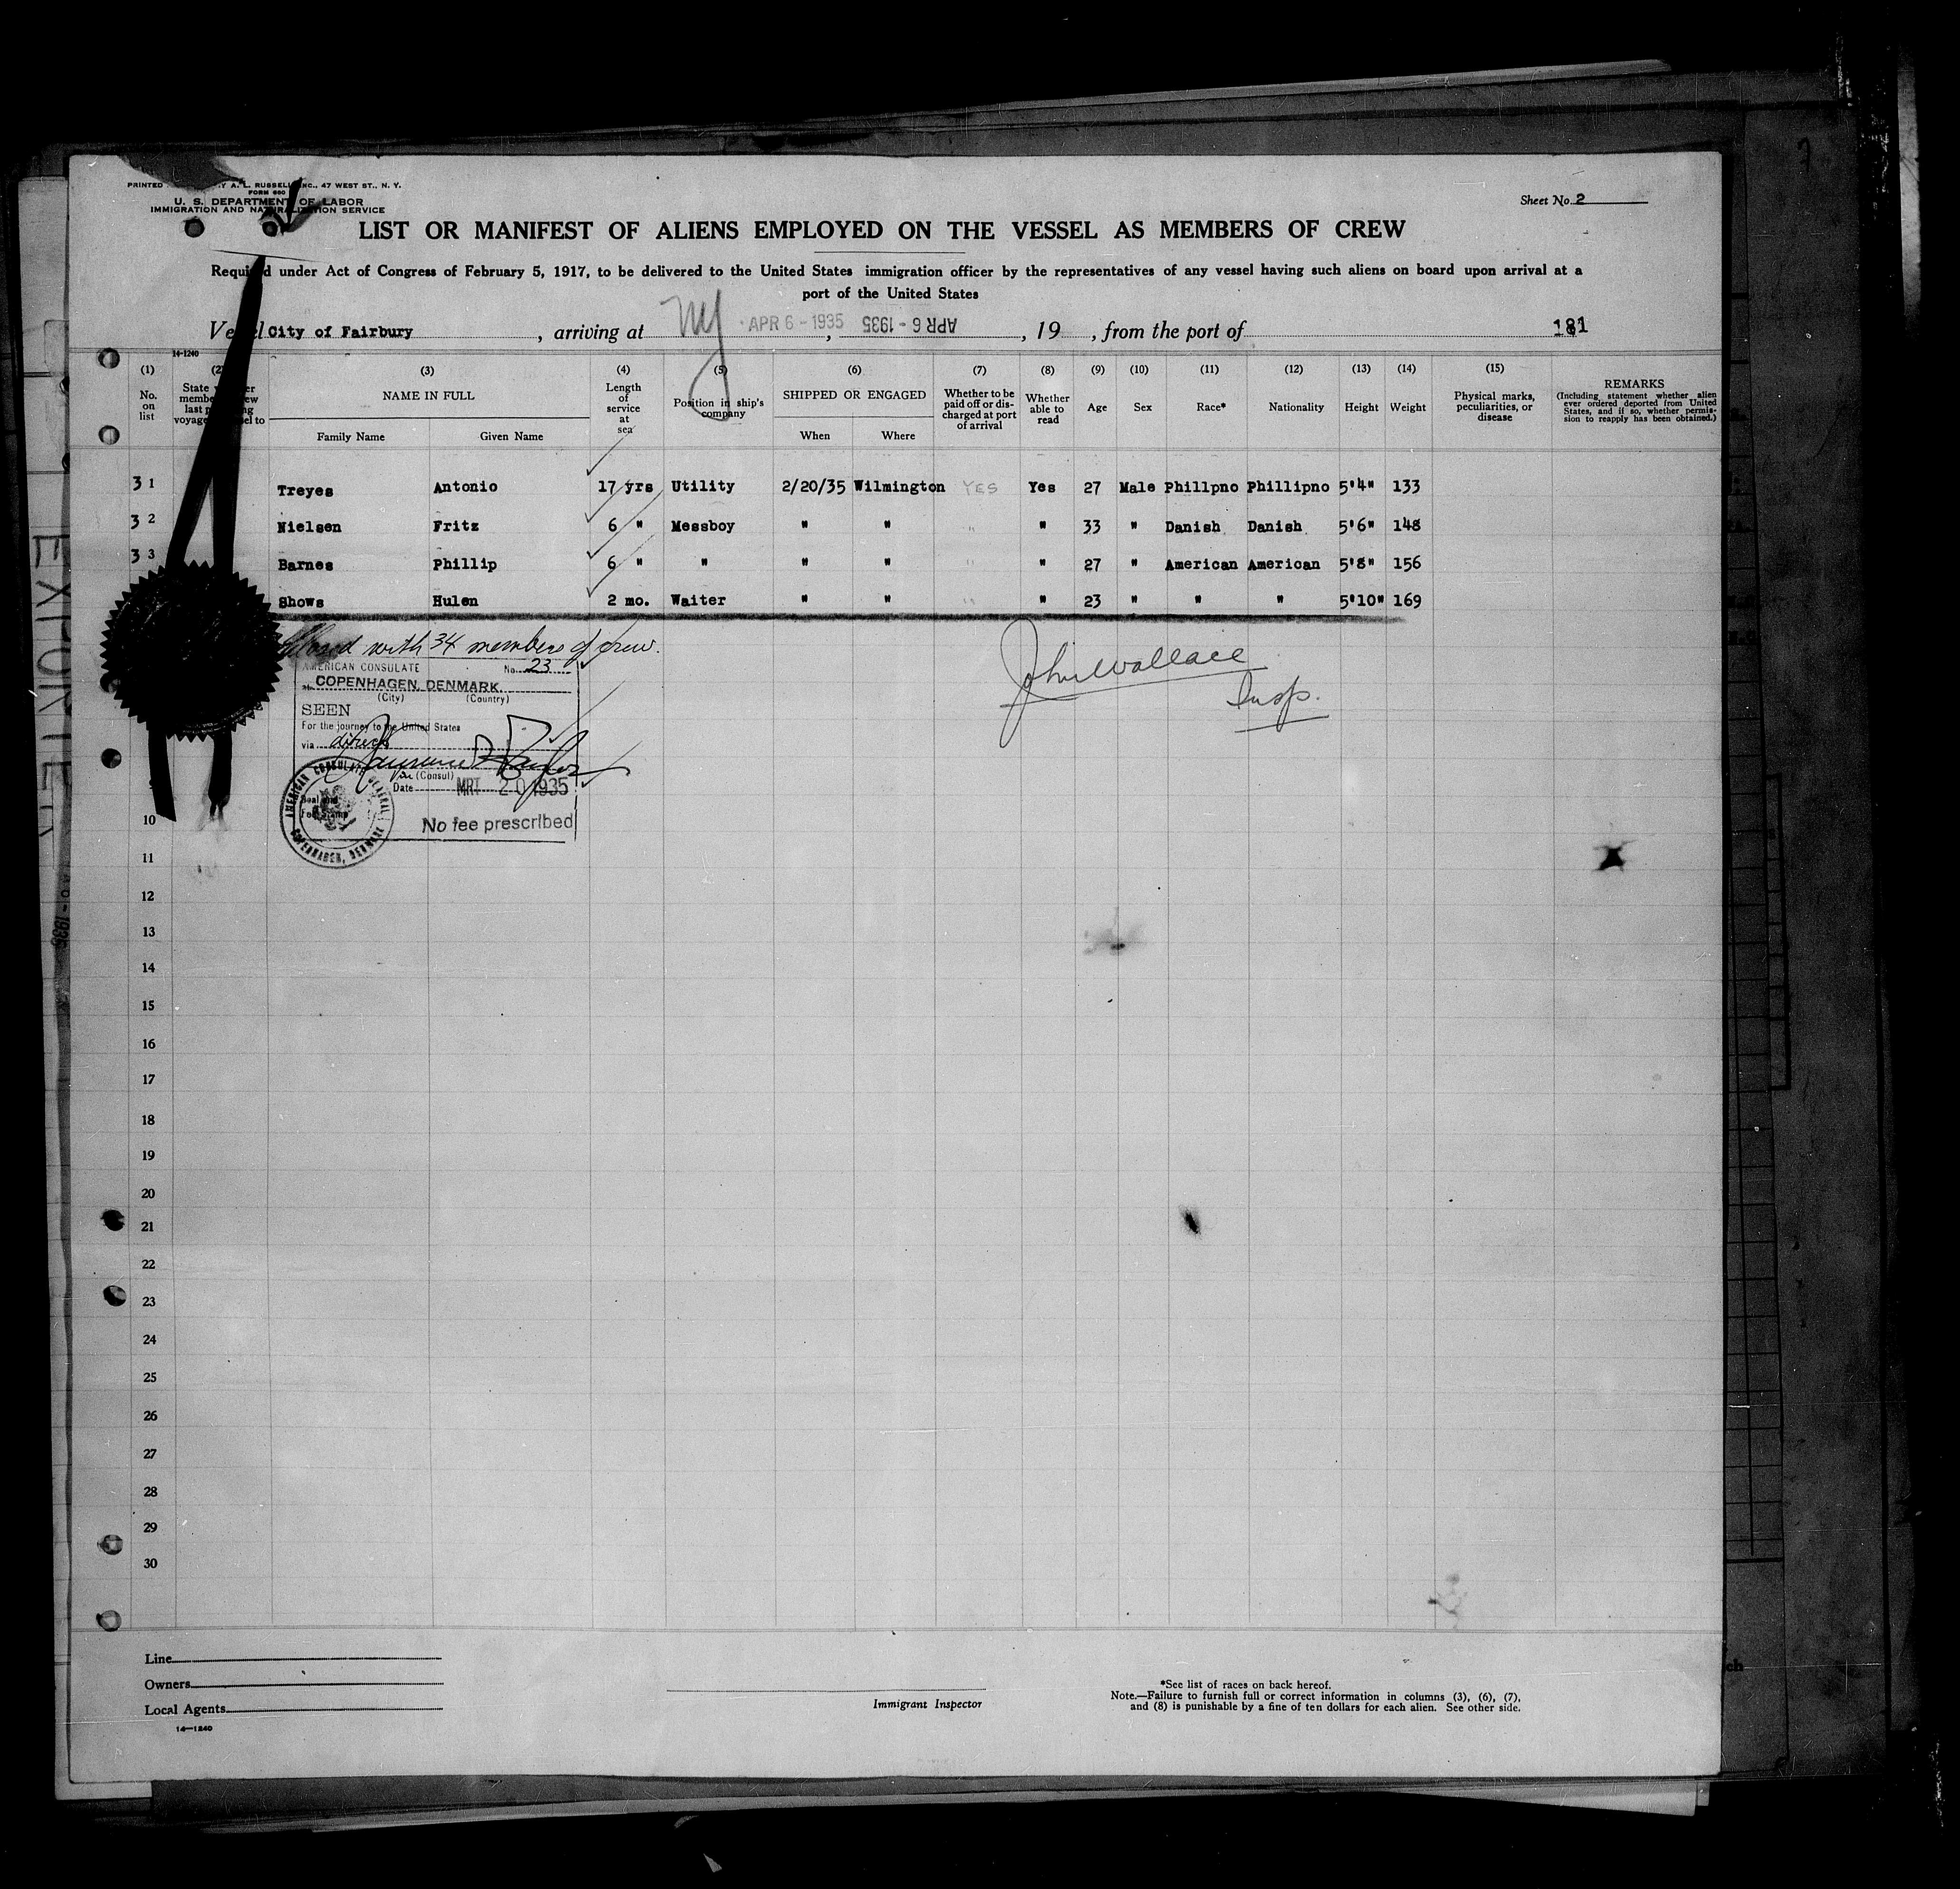 Sheet No. 2
U. S. DEPARTMENT OF LABOR
IMMIGRATION AND NATURALIZATION SERVICE
LIST OR MANIFEST OF ALIENS EMPLOYED ON THE VESSEL AS MEMBERS OF CREW
Required under Act of Congress of February 5, 1917, to be delivered to the United States immigration officer by the representatives of any vessel having such aliens on board upon arrival at a
port of the United States
Vessel City of Fairbury, arriving at NY APR 6 - 1935, APR 6 - 1935, 19 , from the port of 181
14-1240
(1) (2) (3) (4) (5) (6) (7) (8) (9) (10) (11) (12) (13) (14) (15)
No. on list
NAME IN FULL
Family Name Given Name
Length of service at sea
Position in ship's company
SHIPPED OR ENGAGED
When Where
Whether to be paid off or discharged at port of arrival
Whether able to read
Age Sex Race* Nationality Height Weight
Physical marks, peculiarities, or disease
REMARKS
(Including statement whether alien ever ordered deported from United States, and if so, whether permission to reapply has been obtained.)
31 Treyes Antonio 17 yrs Utility 2/20/35 Wilmington YES Yes 27 Male Phillpno Phillipno 5'4" 133
32 Nielsen Fritz 6 " Messboy " " " " 33 " Danish Danish 5'6" 148
33 Barnes Phillip 6 " " " " " " 27 " American American 5'8" 156
Shows Hulen 2 mo. Waiter " " " " 23 " " " 5'10" 169
Closed with 34 members of crew.
AMERICAN CONSULATE No. 23
COPENHAGEN, DENMARK.
(City) (Country)
SEEN
For the journey to the United States
via direct
(Consul)
Date MRT 20 1935
No fee prescribed
AMERICAN CONSULATE GENERAL
COPENHAGEN, DENMARK
John Wallace
Insp.
10
11
12
13
14
15
16
17
18
19
20
21
22
23
24
25
26
27
28
29
30
Line
Owners
Local Agents
14—1240
Immigrant Inspector
*See list of races on back hereof.
Note.—Failure to furnish full or correct information in columns (3), (6), (7),
and (8) is punishable by a fine of ten dollars for each alien. See other side.